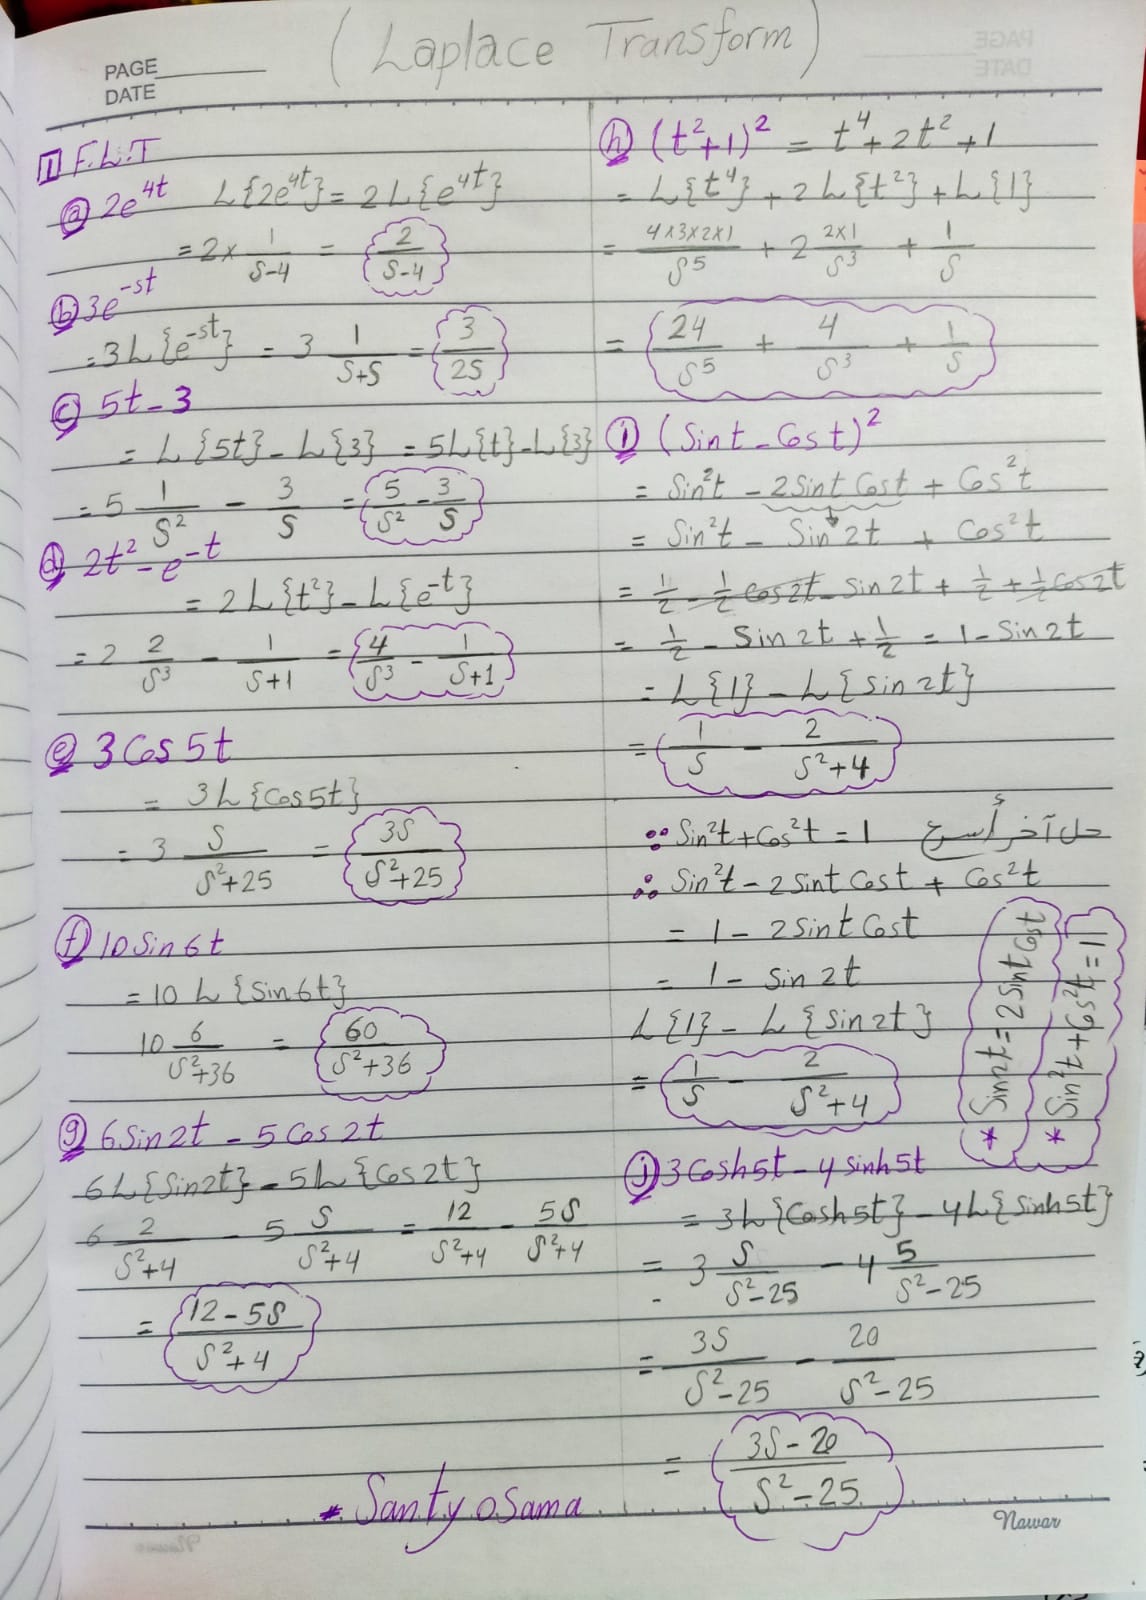 (Laplace Transform)
PAGE
DATE
1 F.L.T
ⓐ 2e^4t L{2e^4t} = 2L{e^4t}
= 2 × 1/(S-4) = 2/(S-4)
ⓑ 3e^-st
= 3L{e^-st} = 3 1/(S+S) = 3/2S
ⓒ 5t - 3
= L{5t} - L{3} = 5L{t} - L{3}
= 5 1/S² - 3/S = 5/S² - 3/S
ⓓ 2t² - e^-t
= 2L{t²} - L{e^-t}
= 2 2/S³ - 1/(S+1) = 4/S³ - 1/(S+1)
ⓔ 3Cos5t
= 3L{Cos5t}
= 3 S/(S²+25) = 3S/(S²+25)
ⓕ 10Sin6t
= 10 L{Sin6t}
10 6/(S²+36) = 60/(S²+36)
ⓖ 6Sin2t - 5Cos2t
6L{Sin2t} - 5L{Cos2t}
6 2/(S²+4) - 5 S/(S²+4) = 12/(S²+4) - 5S/(S²+4)
= (12-5S)/(S²+4)
ⓗ (t²+1)² = t⁴+2t²+1
= L{t⁴} + 2L{t²} + L{1}
= (4×3×2×1)/S⁵ + 2 (2×1)/S³ + 1/S
= 24/S⁵ + 4/S³ + 1/S
ⓘ (Sint - Cost)²
= Sin²t - 2Sint Cost + Cos²t
= Sin²t - Sin2t + Cos²t
= 1/2 - 1/2 Cos2t - Sin2t + 1/2 + 1/2 Cos2t
= 1/2 - Sin2t + 1/2 = 1 - Sin2t
= L{1} - L{Sin2t}
= 1/S - 2/(S²+4)
∵ Sin²t + Cos²t = 1 حل آخر أسرع
∴ Sin²t - 2Sint Cost + Cos²t
= 1 - 2Sint Cost
= 1 - Sin2t
L{1} - L{Sin2t}
= 1/S - 2/(S²+4)
* Sin2t = 2Sint Cost
* Sin²t + Cos²t = 1
ⓙ 3Cosh5t - 4Sinh5t
= 3L{Cosh5t} - 4L{Sinh5t}
= 3 S/(S²-25) - 4 5/(S²-25)
= 3S/(S²-25) - 20/(S²-25)
= (3S-20)/(S²-25)
* Santy osama
Nawar